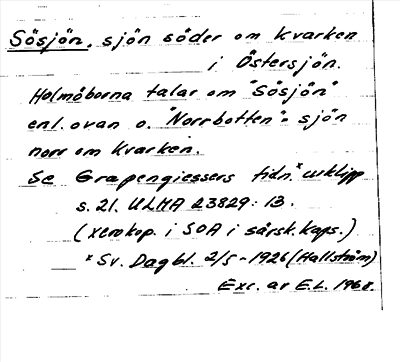 Sösjön, sjön söder om Kvarken
i Östersjön.
Holmöborna talar om "Sösjön"
enl. ovan o. "Norrbotten" = sjön
norr om Kvarken.
Se Grapengiessers tidn.* urklipp
s. 21. ULMA 23829:13.
(xerokop. i SOA i särsk. kaps.)
* Sv. Dagbl. 2/5 - 1926 (Hallström)
Exc. av E.L. 1968.